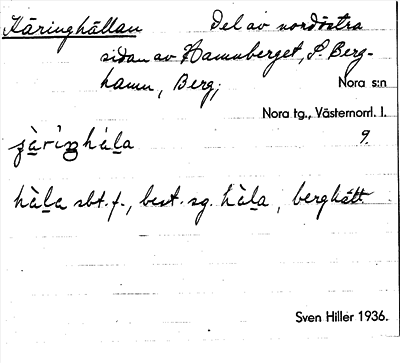 Käringhällan Del av nordöstra
sidan av Hamnberget, S. Berg-
hamn, Berg; Nora s:n
Nora tg., Västernorrl. l.
9.
hàḷa sbt. f., best. sg. hàḷa, berghätt
Sven Hiller 1936.